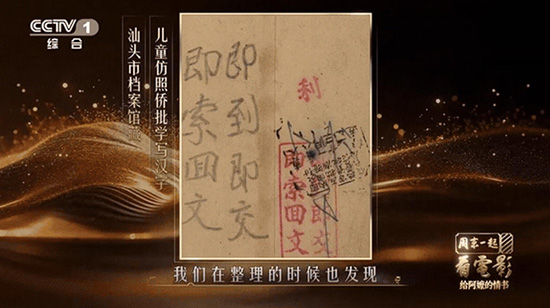 CCTV 1
综合
儿童仿照侨批学写汉字
汕头市档案馆藏
即到即交
即索回文
利
即到即交
即索回文
我们在整理的时候也发现
周末一起
看電影
给阿嬷的情书